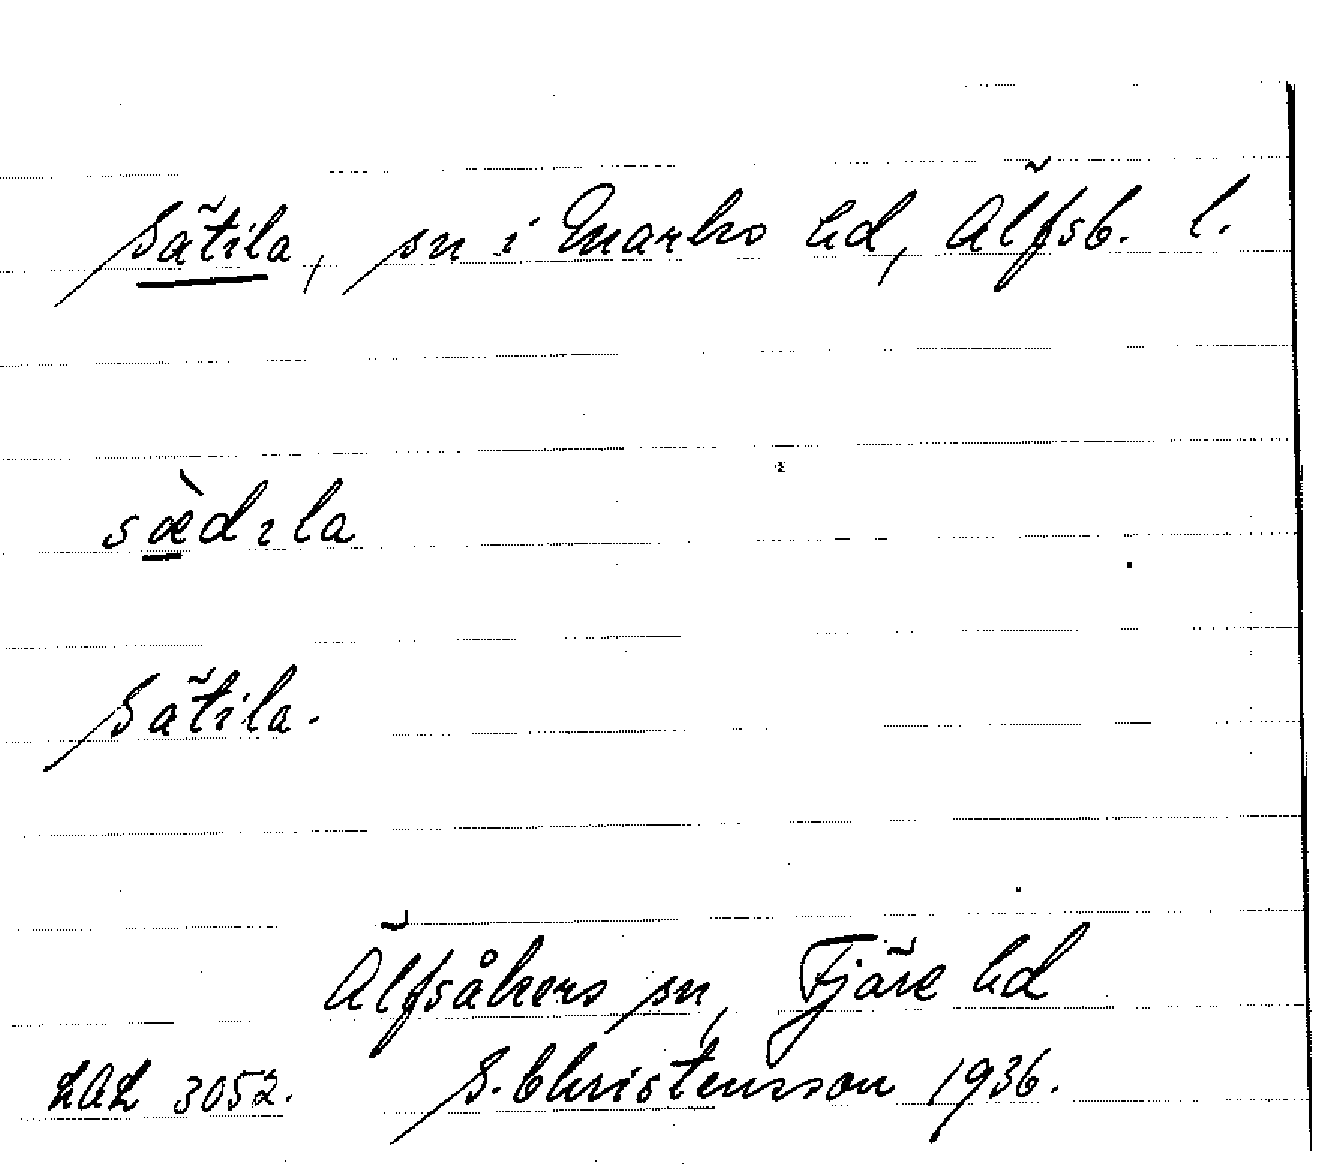 Sätila, sn i Marks hd, Älfsb. l.
sæ̀dıla
Sätila.
Älfsåkers sn, Fjäre hd
LAL 3052. S. Christensson 1936.